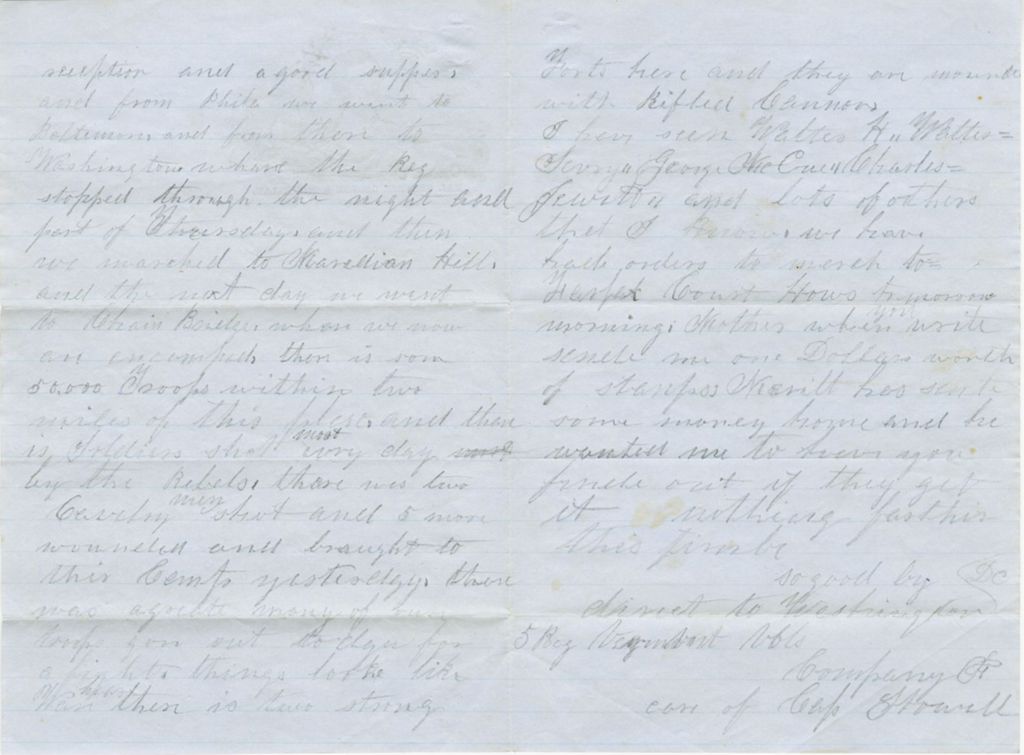 reception and a good supper.
and from Phila we went to
Baltimore. and from there to
Washington whare the Reg
stopped through the night and
part of Thursday. and then
we marched to Maredian Hill.
and the next day we went
to Chain Bridge. whare we now
are encamped. there is som
50,000 Troops within two
miles of this place. and there
is Soldiers shot most evry day
by the Rebels. there was two
Cavelry men shot and 5 more
wounded and braught to
this Camp yesterdy. there
was a greate many of our
troops gon out to day for
a fight. things looke like
War hear then is two strong
Forts here and they are mounted
with Rifled Cannon.
I have seen Walter H.
George McCue Charles=
and Lots of others
that I know. we have
orders to march to=
Court Hows tomorrow
morning. Mother when you write
sende me one Dollars worth
of stamps. Merill has sente
some money home and he
wanted me to have you
finde out if they get
it nothing farther
this time
so good by
direct to Washington DC
5 Reg Vermont Vols
Company F
care of Cap Stowell